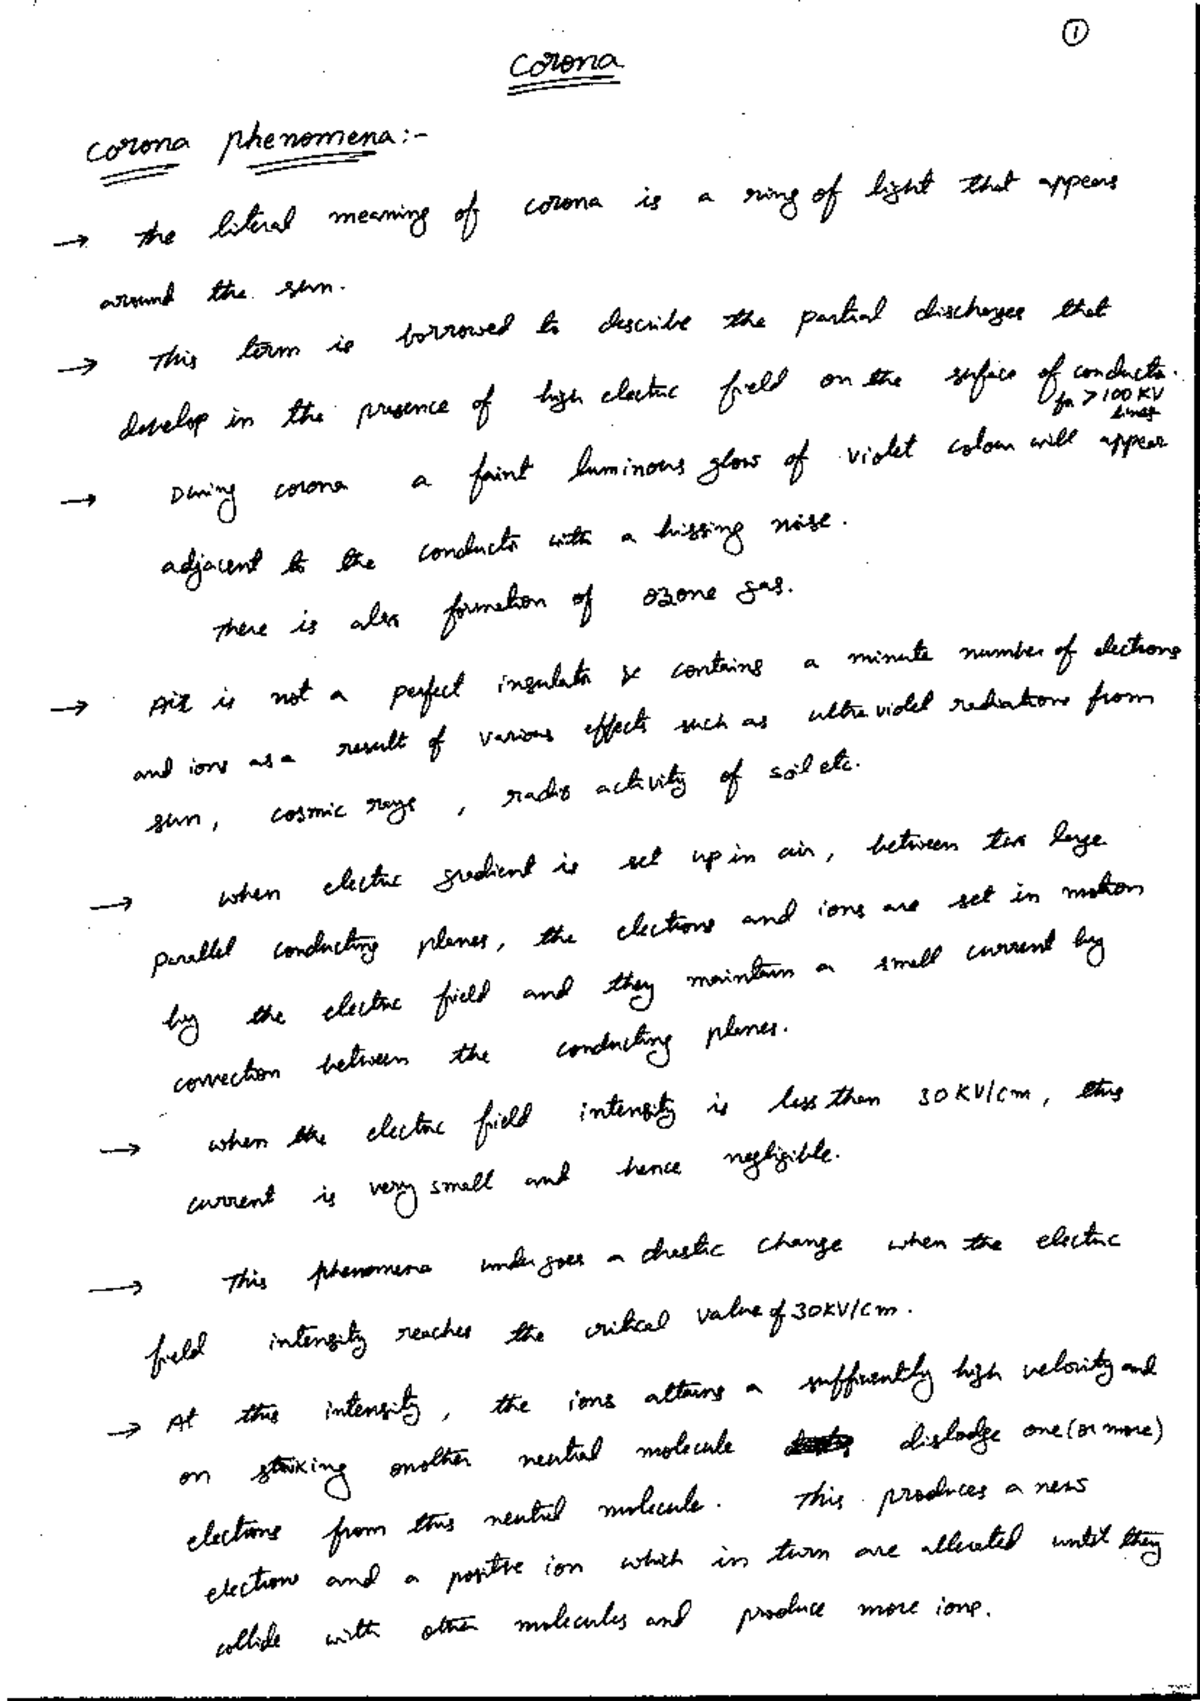 ①
Corona
Corona phenomena:-
→ The literal meaning of corona is a ring of light that appears
around the sun.
→ This term is borrowed to describe the partial discharges that
develop in the presence of high electric field on the surface of conductor.
for > 100 KV
lines
→ During corona a faint luminous glow of violet colour will appear
adjacent to the conductor with a hissing noise.
There is also formation of ozone gas.
→ Air is not a perfect insulator & contains a minute number of electrons
and ions as a result of various effects such as ultra violet radiations from
sun, cosmic rays, radio activity of soil etc.
→ when electric gradient is set up in air, between two large
parallel conducting planes, the electrons and ions are set in motion
by the electric field and they maintain a small current by
convection between the conducting planes.
→ when the electric field intensity is less than 30 KV/cm, this
current is very small and hence negligible.
→ This phenomena undergoes a drastic change when the electric
field intensity reaches the critical value of 30KV/cm.
→ At this intensity, the ions attains a sufficiently high velocity and
on striking another neutral molecule dislodge one (or more)
electrons from this neutral molecule. This produces a new
electron and a positive ion which in turn are allerated until they
collide with other molecules and produce more ions.